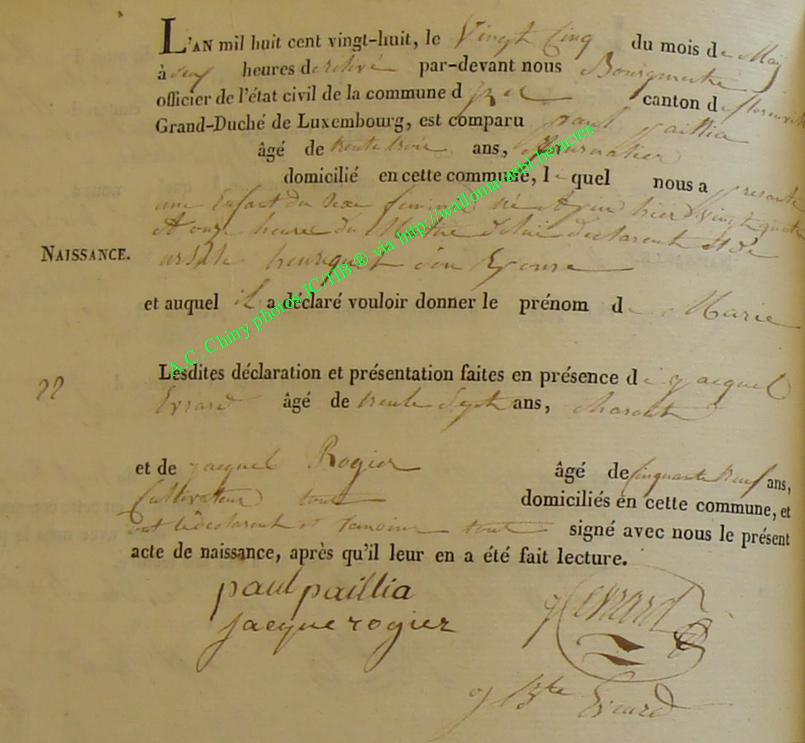 L'AN mil huit cent vingt-huit, le Vingt Cinq du mois de May
à six heures de relevé par-devant nous Bourgmestre
officier de l'état civil de la commune d' canton de florenville
Grand-Duché de Luxembourg, est comparu paul paillia
âgé de trente trois ans,
domicilié en cette commune, le quel nous a présenté
une Enfant du sexe feminin né Ajourd hier vingt quatre
A onze heure du declarent et de
henriquet son Epouse
NAISSANCE.
et auquel il a déclaré vouloir donner le prénom de Marie
22
Lesdites déclaration et présentation faites en présence de jacque
Evrard âgé de trente Sept ans,
et de jacque Rogier âgé de Cinquante neuf ans,
Cultivateur tout domiciliés en cette commune, et
ont le declarent et temoins tout signé avec nous le présent
acte de naissance, après qu'il leur en a été fait lecture.
paul paillia
j evrard
jacque rogier
j Bte Evrard
A.C. Chiny photos JC-HB ® via http://wallonia-asbl-heracles